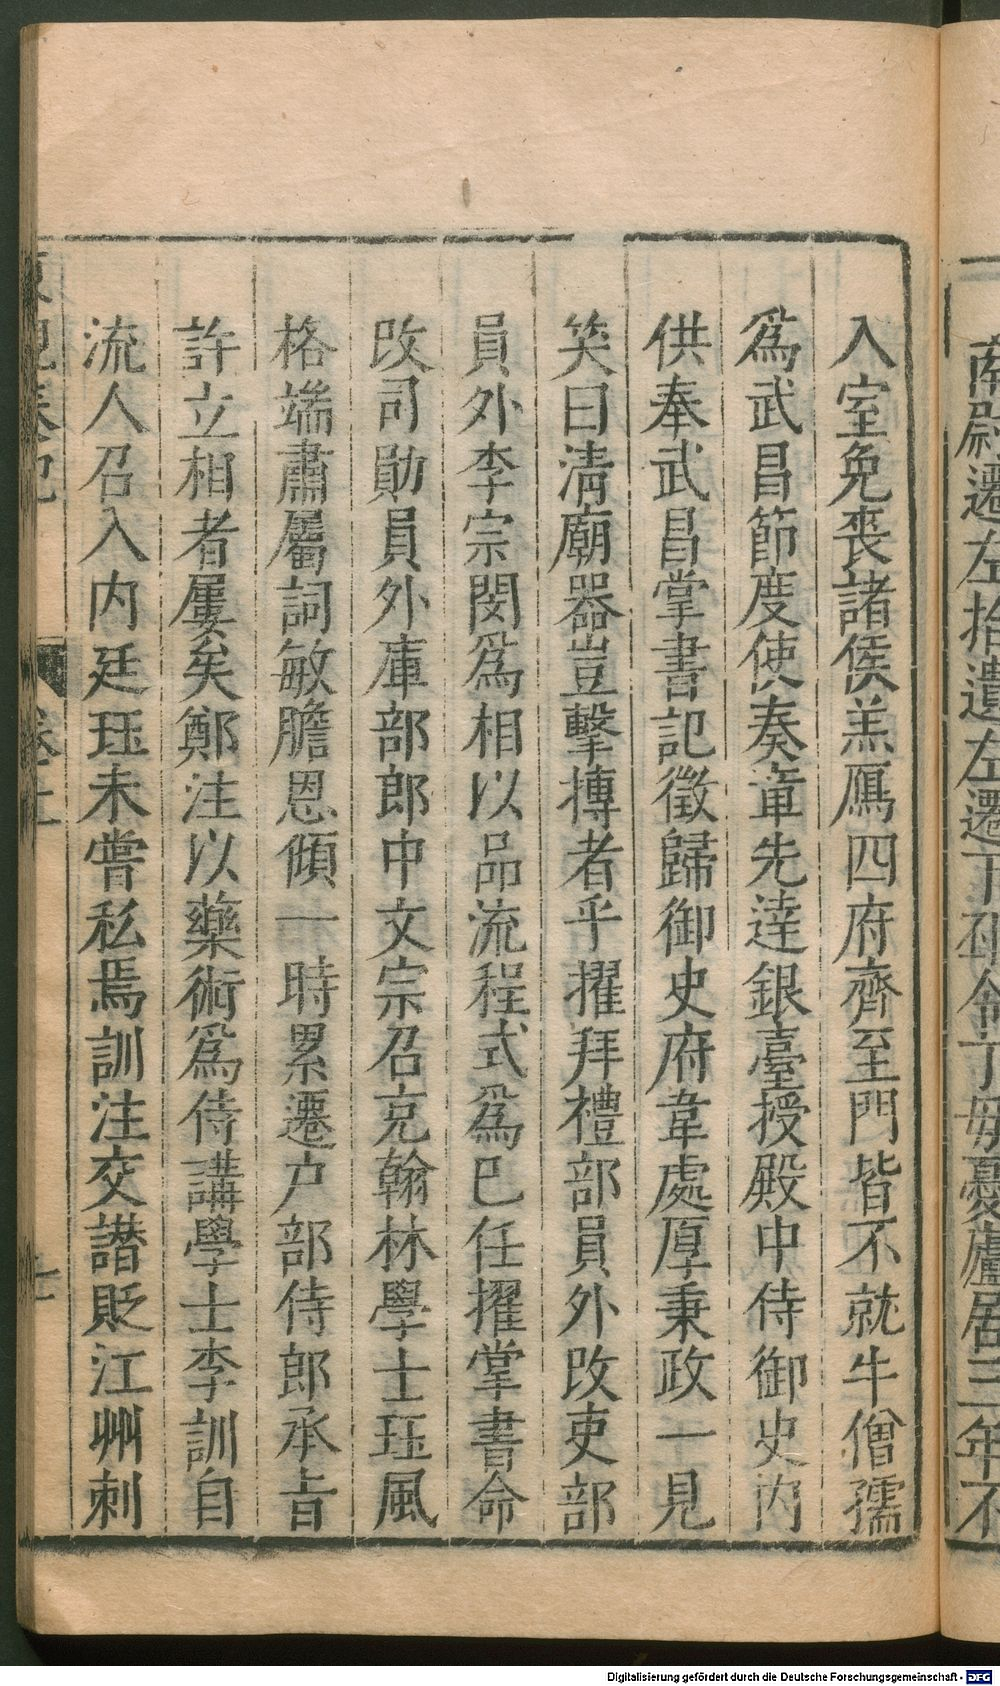 南尉遷左拾遺左遷下邳令丁母憂廬居三年不
入室免喪諸侯羔鴈四府齊至門皆不就牛僧孺
爲武昌節度使奏章先達銀臺授殿中侍御史内
供奉武昌掌書記徵歸御史府韋處厚秉政一見
笑曰淸廟器豈擊搏者乎擢拜禮部員外改吏部
員外李宗閔爲相以品流程式爲巳任擢掌書命
改司勛員外庫部郎中文宗召充翰林學士珏風
格端肅屬詞敏膽恩傾一時累遷户部侍郎承旨
許立相者屢矣鄭注以藥術爲侍講學士李訓自
流人召入内廷珏未嘗私焉訓注交譖貶江州刺
東觀奏記
卷上
Digitalisierung gefördert durch die Deutsche Forschungsgemeinschaft - DFG